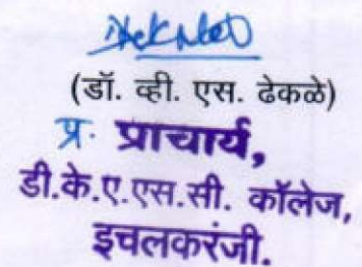 (डॉ. व्ही. एस. ढेकळे)
प्र. प्राचार्य,
डी.के.ए.एस.सी. कॉलेज,
इचलकरंजी.